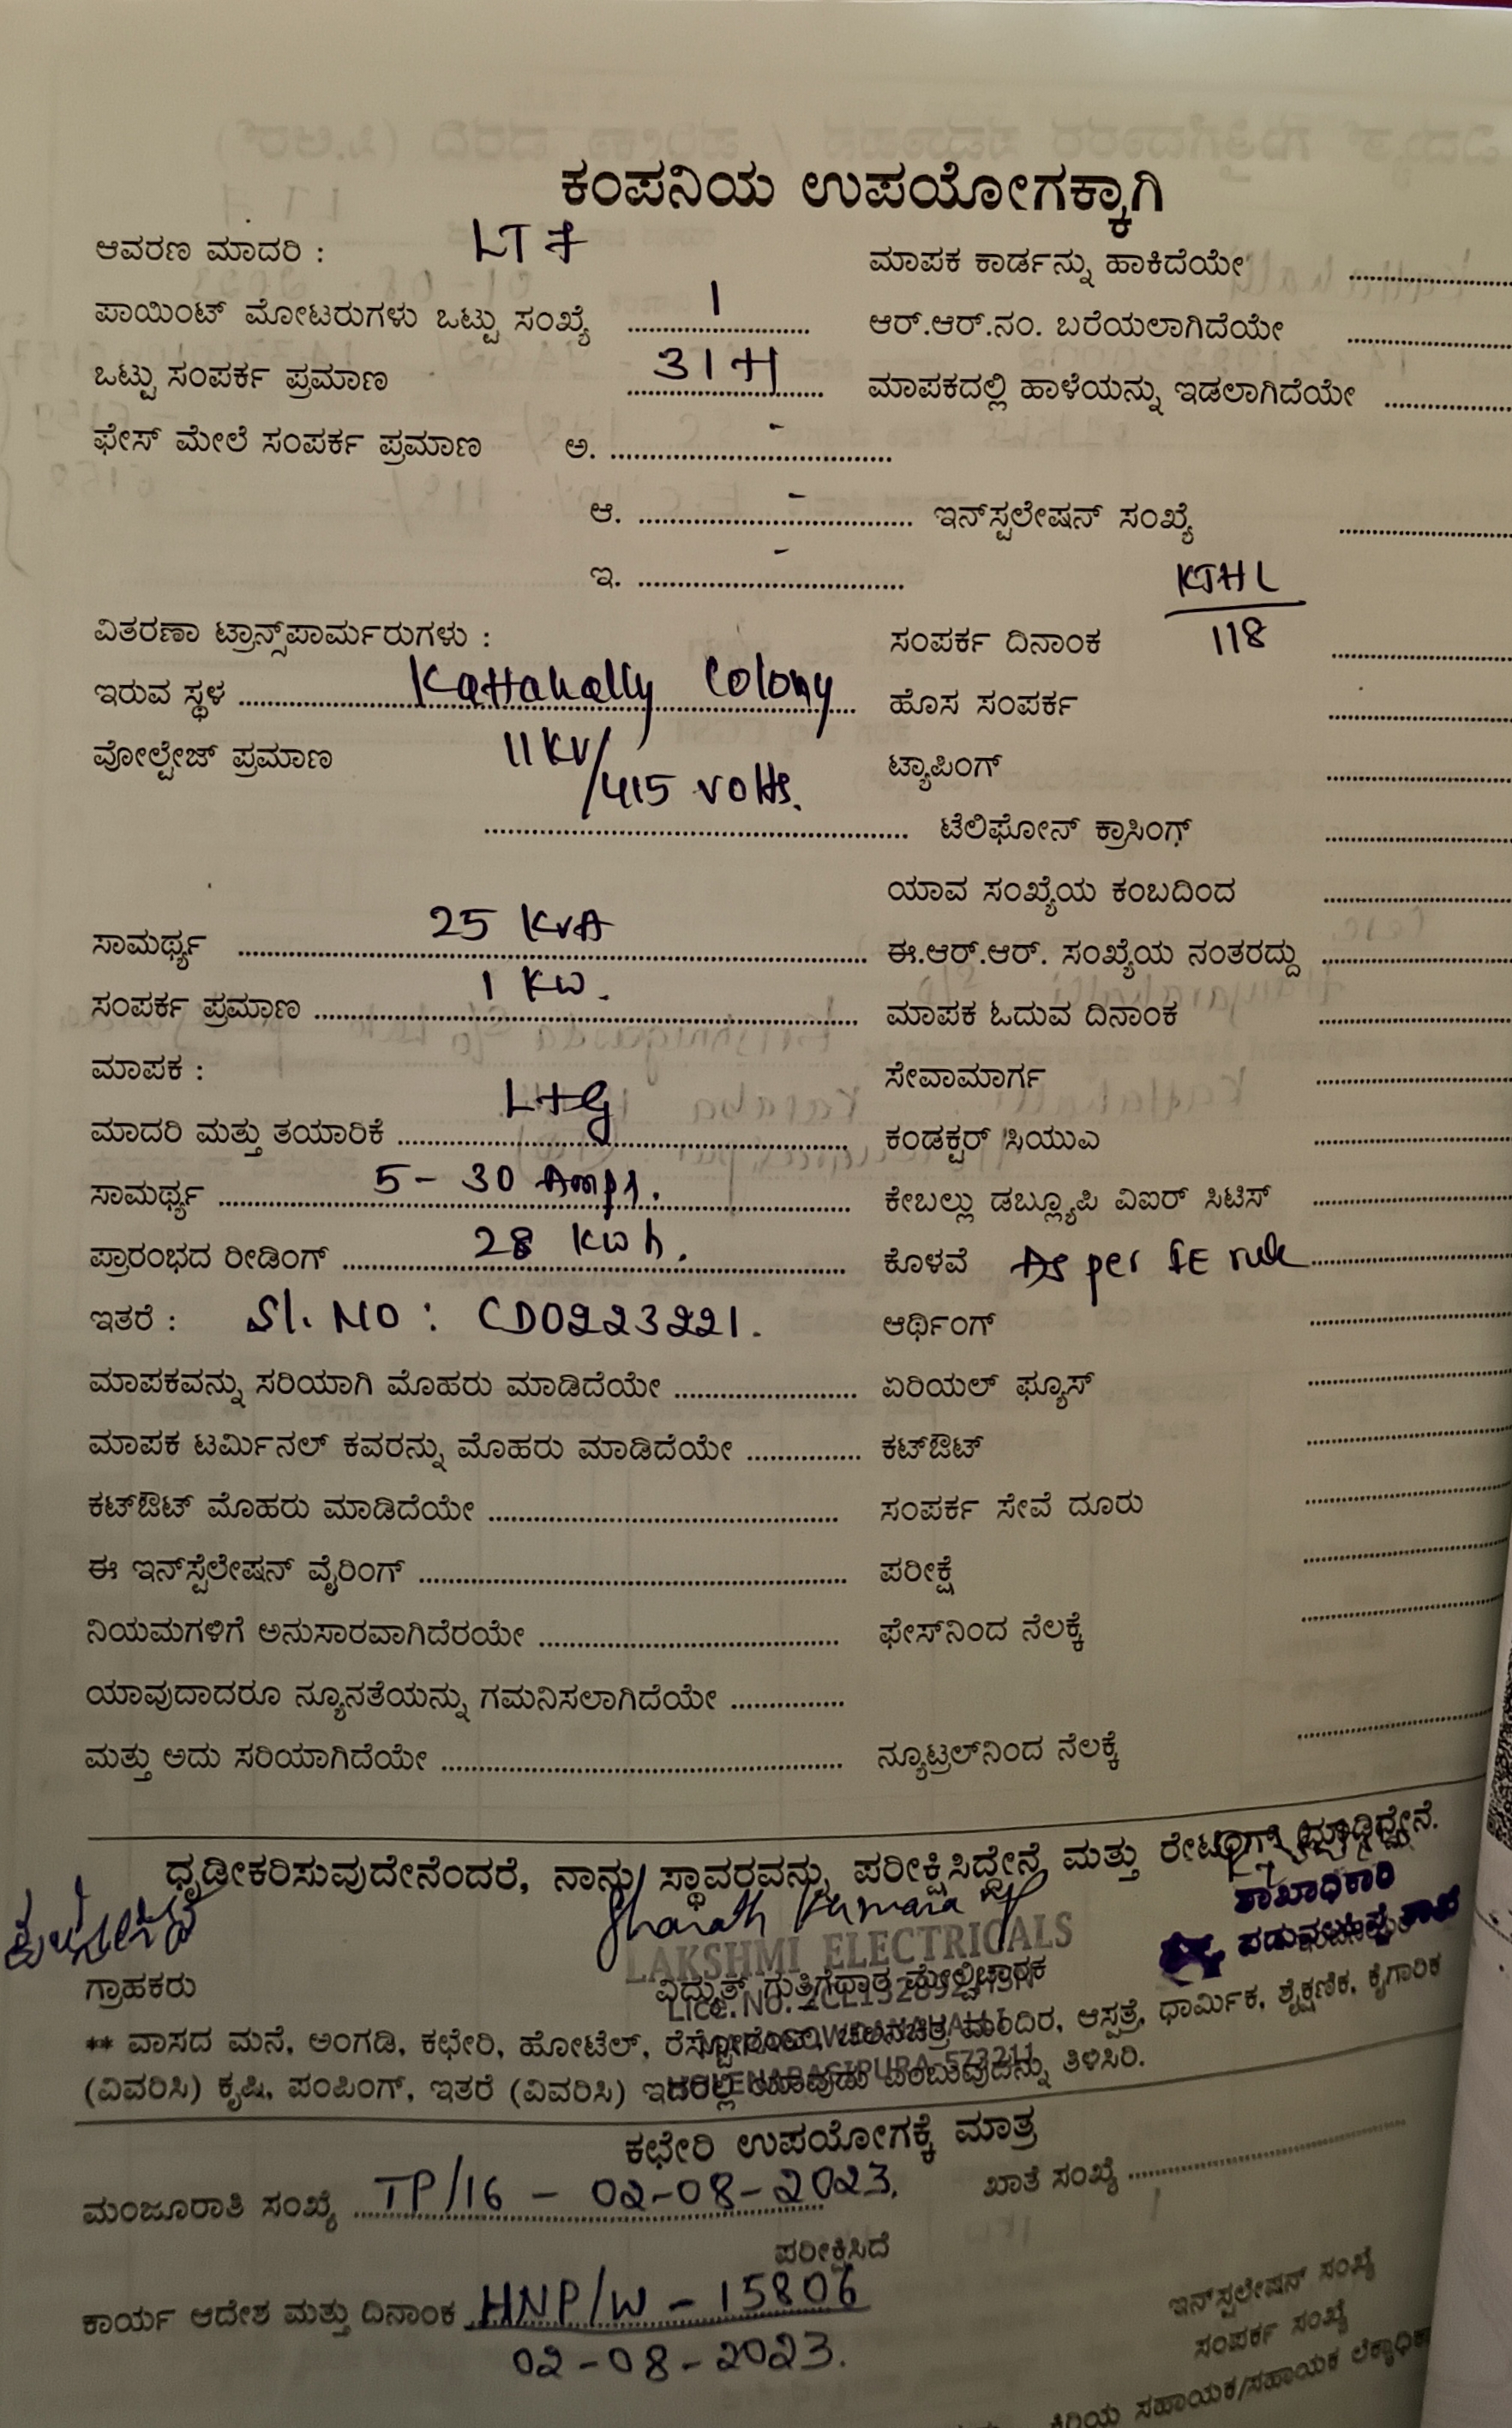 ಕಂಪನಿಯ ಉಪಯೋಗಕ್ಕಾಗಿ
ಆವರಣ ಮಾದರಿ : LT 7 ಮಾಪಕ ಕಾರ್ಡನ್ನು ಹಾಕಿದೆಯೇ
ಪಾಯಿಂಟ್ ಮೋಟರುಗಳು ಒಟ್ಟು ಸಂಖ್ಯೆ 1 ಆರ್.ಆರ್.ನಂ. ಬರೆಯಲಾಗಿದೆಯೇ
ಒಟ್ಟು ಸಂಪರ್ಕ ಪ್ರಮಾಣ ಮಾಪಕದಲ್ಲಿ ಹಾಳೆಯನ್ನು ಇಡಲಾಗಿದೆಯೇ
ಫೇಸ್ ಮೇಲೆ ಸಂಪರ್ಕ ಪ್ರಮಾಣ ಅ. -
ಆ. - ಇನ್‌ಸ್ಟಲೇಷನ್ ಸಂಖ್ಯೆ
ಇ. - KTHL
ವಿತರಣಾ ಟ್ರಾನ್ಸ್‌ಪಾರ್ಮರುಗಳು : ಸಂಪರ್ಕ ದಿನಾಂಕ 118
ಇರುವ ಸ್ಥಳ Kattahally Colony ಹೊಸ ಸಂಪರ್ಕ
ವೋಲ್ಟೇಜ್ ಪ್ರಮಾಣ 11KV/415 volts. ಟ್ಯಾಪಿಂಗ್
ಟೆಲಿಫೋನ್ ಕ್ರಾಸಿಂಗ್
ಯಾವ ಸಂಖ್ಯೆಯ ಕಂಬದಿಂದ
ಸಾಮರ್ಥ್ಯ 25 KVA ಈ.ಆರ್.ಆರ್. ಸಂಖ್ಯೆಯ ನಂತರದ್ದು
ಸಂಪರ್ಕ ಪ್ರಮಾಣ 1 KW. ಮಾಪಕ ಓದುವ ದಿನಾಂಕ
ಮಾಪಕ : ಸೇವಾಮಾರ್ಗ
ಮಾದರಿ ಮತ್ತು ತಯಾರಿಕೆ L+G ಕಂಡಕ್ಟರ್ ಸಿಯುಎ
ಸಾಮರ್ಥ್ಯ 5 - 30 Amps. ಕೇಬಲ್ಲು ಡಬ್ಲ್ಯೂಪಿ ವಿಐರ್ ಸಿಟಿಸ್
ಪ್ರಾರಂಭದ ರೀಡಿಂಗ್ 28 KWh. ಕೊಳವೆ As per IE rule
ಇತರೆ : Sl. NO : CD0223221. ಆರ್ಥಿಂಗ್
ಮಾಪಕವನ್ನು ಸರಿಯಾಗಿ ಮೊಹರು ಮಾಡಿದೆಯೇ ಏರಿಯಲ್ ಫ್ಯೂಸ್
ಮಾಪಕ ಟರ್ಮಿನಲ್ ಕವರನ್ನು ಮೊಹರು ಮಾಡಿದೆಯೇ ಕಟ್‌ಔಟ್
ಕಟ್‌ಔಟ್ ಮೊಹರು ಮಾಡಿದೆಯೇ ಸಂಪರ್ಕ ಸೇವೆ ದೂರು
ಈ ಇನ್‌ಸ್ಪೆಲೇಷನ್ ವೈರಿಂಗ್ ಪರೀಕ್ಷೆ
ನಿಯಮಗಳಿಗೆ ಅನುಸಾರವಾಗಿದೆರಯೇ ಫೇಸ್‌ನಿಂದ ನೆಲಕ್ಕೆ
ಯಾವುದಾದರೂ ನ್ಯೂನತೆಯನ್ನು ಗಮನಿಸಲಾಗಿದೆಯೇ
ಮತ್ತು ಅದು ಸರಿಯಾಗಿದೆಯೇ ನ್ಯೂಟ್ರಲ್‌ನಿಂದ ನೆಲಕ್ಕೆ
ಧೃಡೀಕರಿಸುವುದೇನೆಂದರೆ, ನಾನು ಸ್ಥಾವರವನ್ನು ಪರೀಕ್ಷಿಸಿದ್ದೇನೆ ಮತ್ತು
Sharath Kumara ಶಾಖಾಧಿಕಾರಿ
LAKSHMI ELECTRICALS
ಗ್ರಾಹಕರು ವಿದ್ಯುತ್ ಗುತ್ತಿಗೆದಾರ ಮೇಲ್ವಿಚಾರಕ
Lice. No.
** ವಾಸದ ಮನೆ, ಅಂಗಡಿ, ಕಛೇರಿ, ಹೋಟೆಲ್, ಮಂದಿರ, ಆಸ್ಪತ್ರೆ, ಧಾರ್ಮಿಕ, ಶೈಕ್ಷಣಿಕ, ಕೈಗಾರಿಕ
(ವಿವರಿಸಿ) ಕೃಷಿ, ಪಂಪಿಂಗ್, ಇತರೆ (ವಿವರಿಸಿ) ಇದರಲ್ಲಿ ಎಂಬುವುದನ್ನು ತಿಳಿಸಿರಿ.
573211
ಕಛೇರಿ ಉಪಯೋಗಕ್ಕೆ ಮಾತ್ರ
ಮಂಜೂರಾತಿ ಸಂಖ್ಯೆ TP/16 - 02-08-2023. ಖಾತೆ ಸಂಖ್ಯೆ
ಪರೀಕ್ಷಿಸಿದೆ
ಕಾರ್ಯ ಆದೇಶ ಮತ್ತು ದಿನಾಂಕ HNP/W - 15806 ಇನ್‌ಸ್ಪಲೇಷನ್ ಸಂಖ್ಯೆ
02-08-2023. ಸಂಪರ್ಕ ಸಂಖ್ಯೆ
ಕಿರಿಯ ಸಹಾಯಕ/ಸಹಾಯಕ